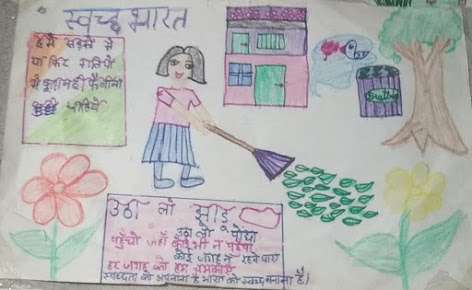 स्वच्छ भारत
हमे सड़को मे
या फिर गलियो
मे कूड़ा नही फैलाना
चाहिये
Dustbin
उठा लो झाडू
उठा लो पोचा
पहुँचो जहाँ कोई भी न पहुँचा
कोई जगह न रहने पाए
हर जगह को हम चमकाए
स्वच्छता को अपनाना है भारत को स्वच्छ बनाना है।